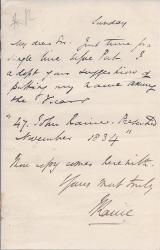 Sunday
My dear Sir. Just time for a
single line before Post. I
adopt your suggestion of
putting my name among
the
"47. John Raine. Resided
November 1834"
copy comes herewith.
Yours most truly
Raine